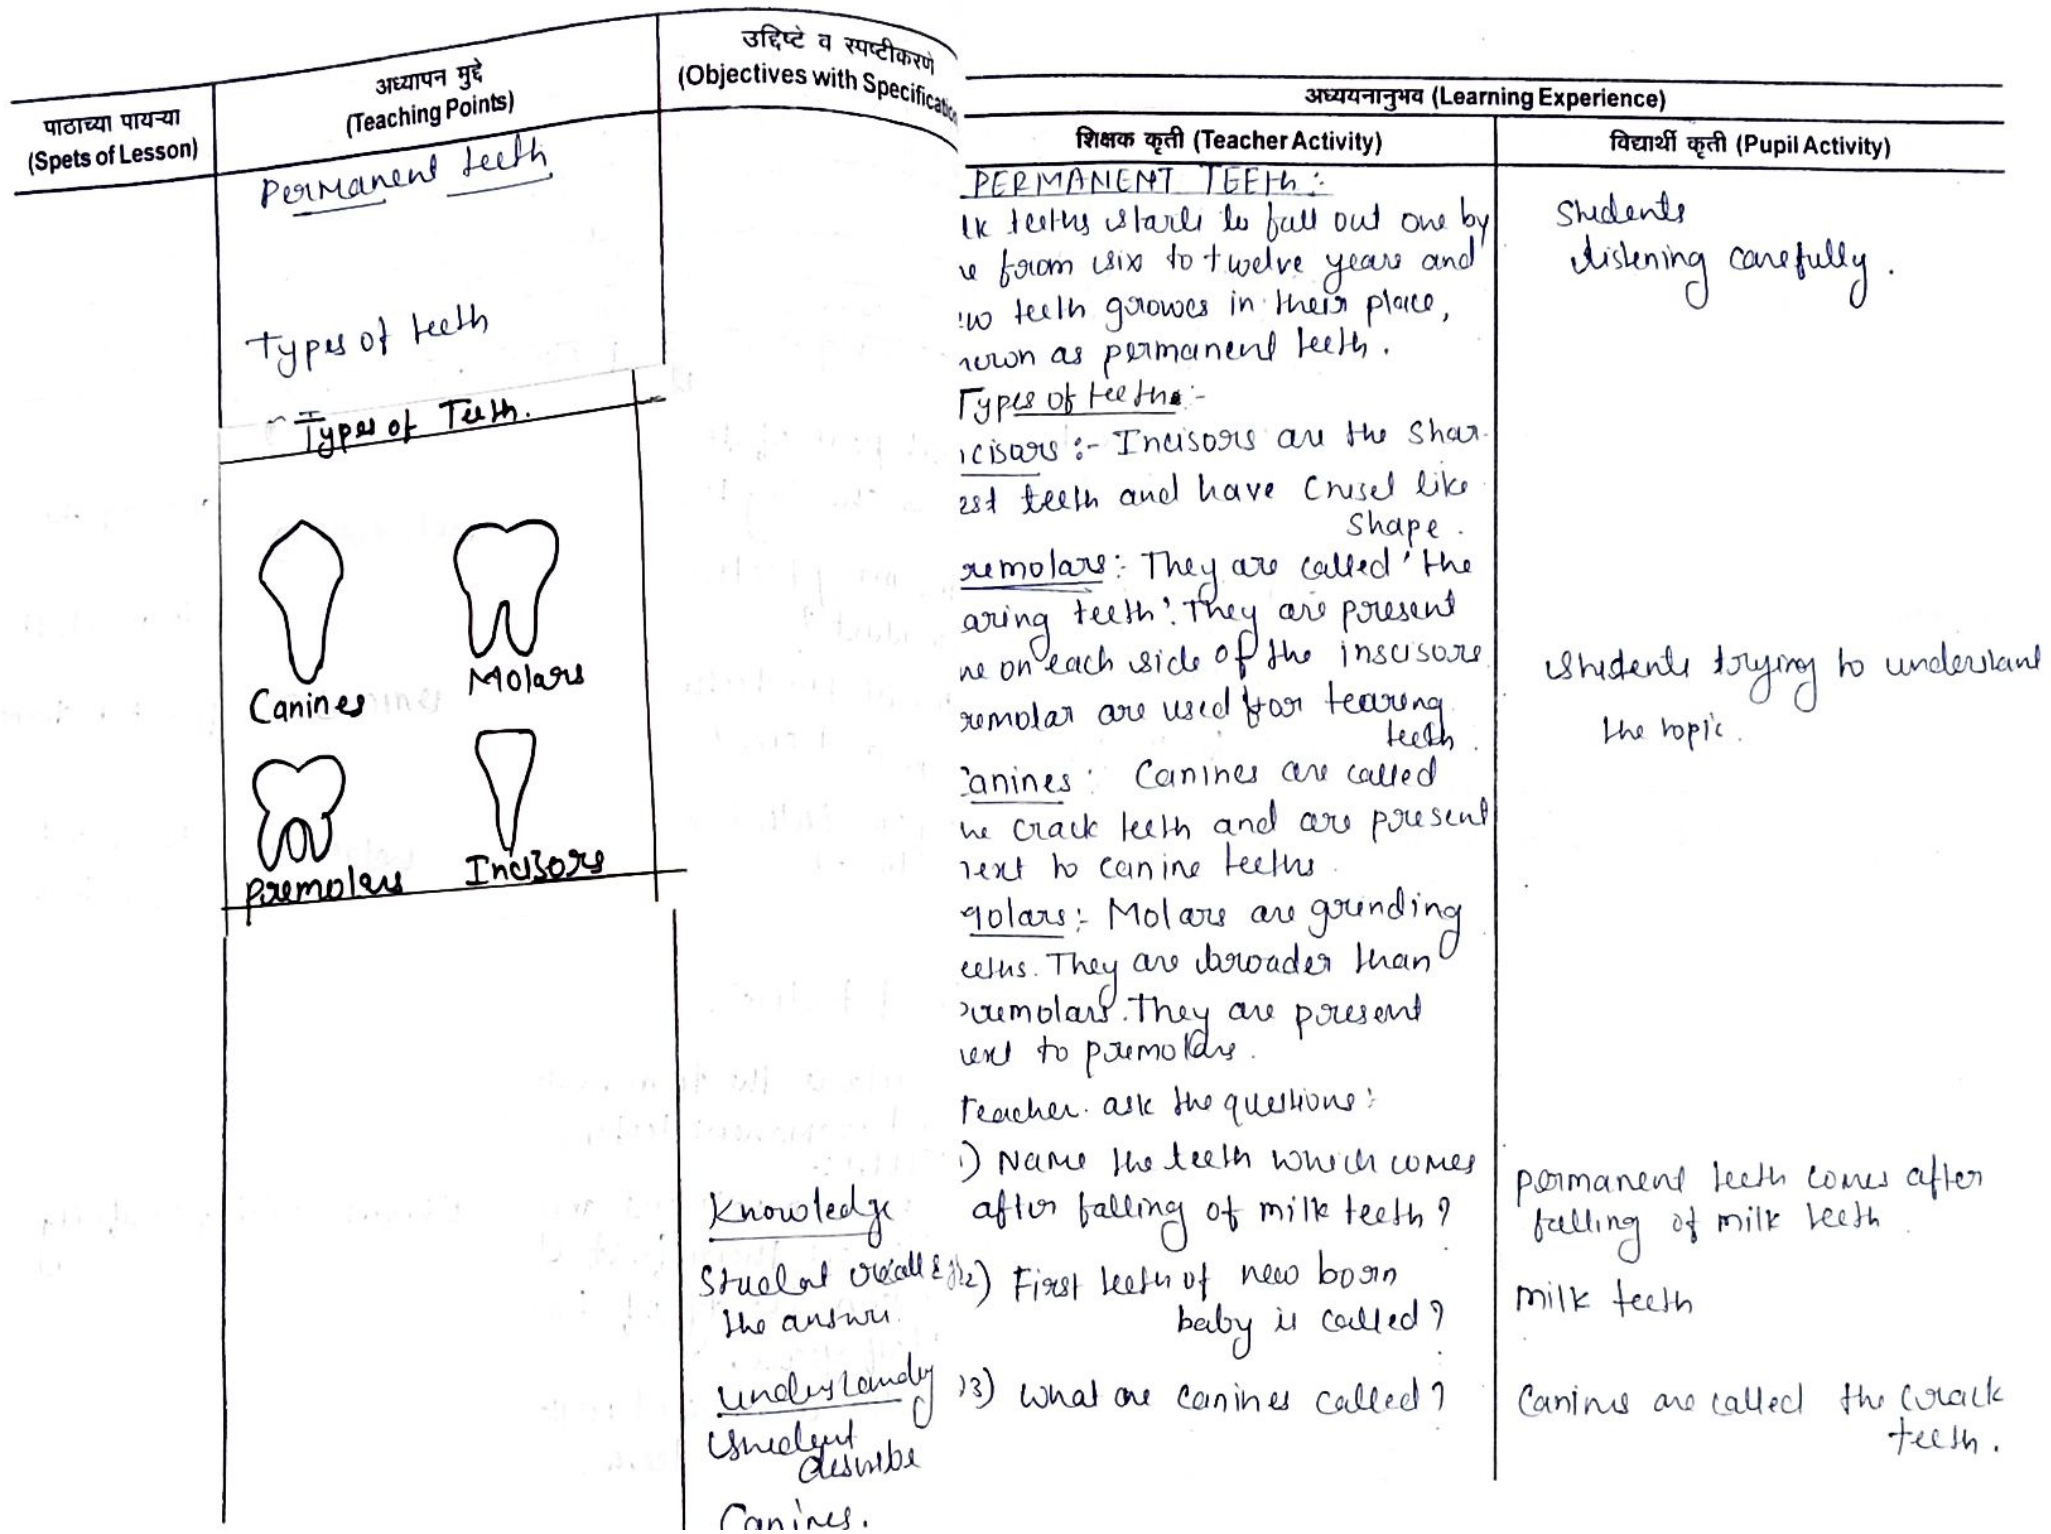 पाठाच्या पायऱ्या
(Spets of Lesson)
अध्यापन मुद्दे
(Teaching Points)
उद्दिष्टे व स्पष्टीकरणे
(Objectives with Specificatio
Permanent teeth
Types of teeth
Types of Teeth.
Canines
Molars
Premolars
Incisors
Knowledge
Student recall &
the answer.
understanding
Student
describe
Canines.
अध्ययनानुभव (Learning Experience)
शिक्षक कृती (Teacher Activity)
PERMANENT TEETh :-
lk teeths starts to fall out one by
e from six to twelve years and
ew teeth growes in their place,
nown as permanent teeth.
Types of teeth :-
ncisors :- Incisors are the Shar-
est teeth and have Chisel like
Shape.
remolars :- They are called 'the
aring teeth'. They are present
ne on each side of the inscisors
remolar are used for tearing
teeth.
Canines : Canines are called
he crack teeth and are present
next to canine teeths.
Molars :- Molars are grinding
eeths. They are broader than
premolars. They are present
next to premolars.
Teacher ask the questions :
1) Name the teeth which comes
after falling of milk teeth ?
2) First teeth of new born
baby is called ?
3) What are canines called ?
विद्यार्थी कृती (Pupil Activity)
Students
listening carefully.
Students trying to understand
the topic.
permanent teeth comes after
falling of milk teeth
milk teeth
Canines are called the Crack
teeth.